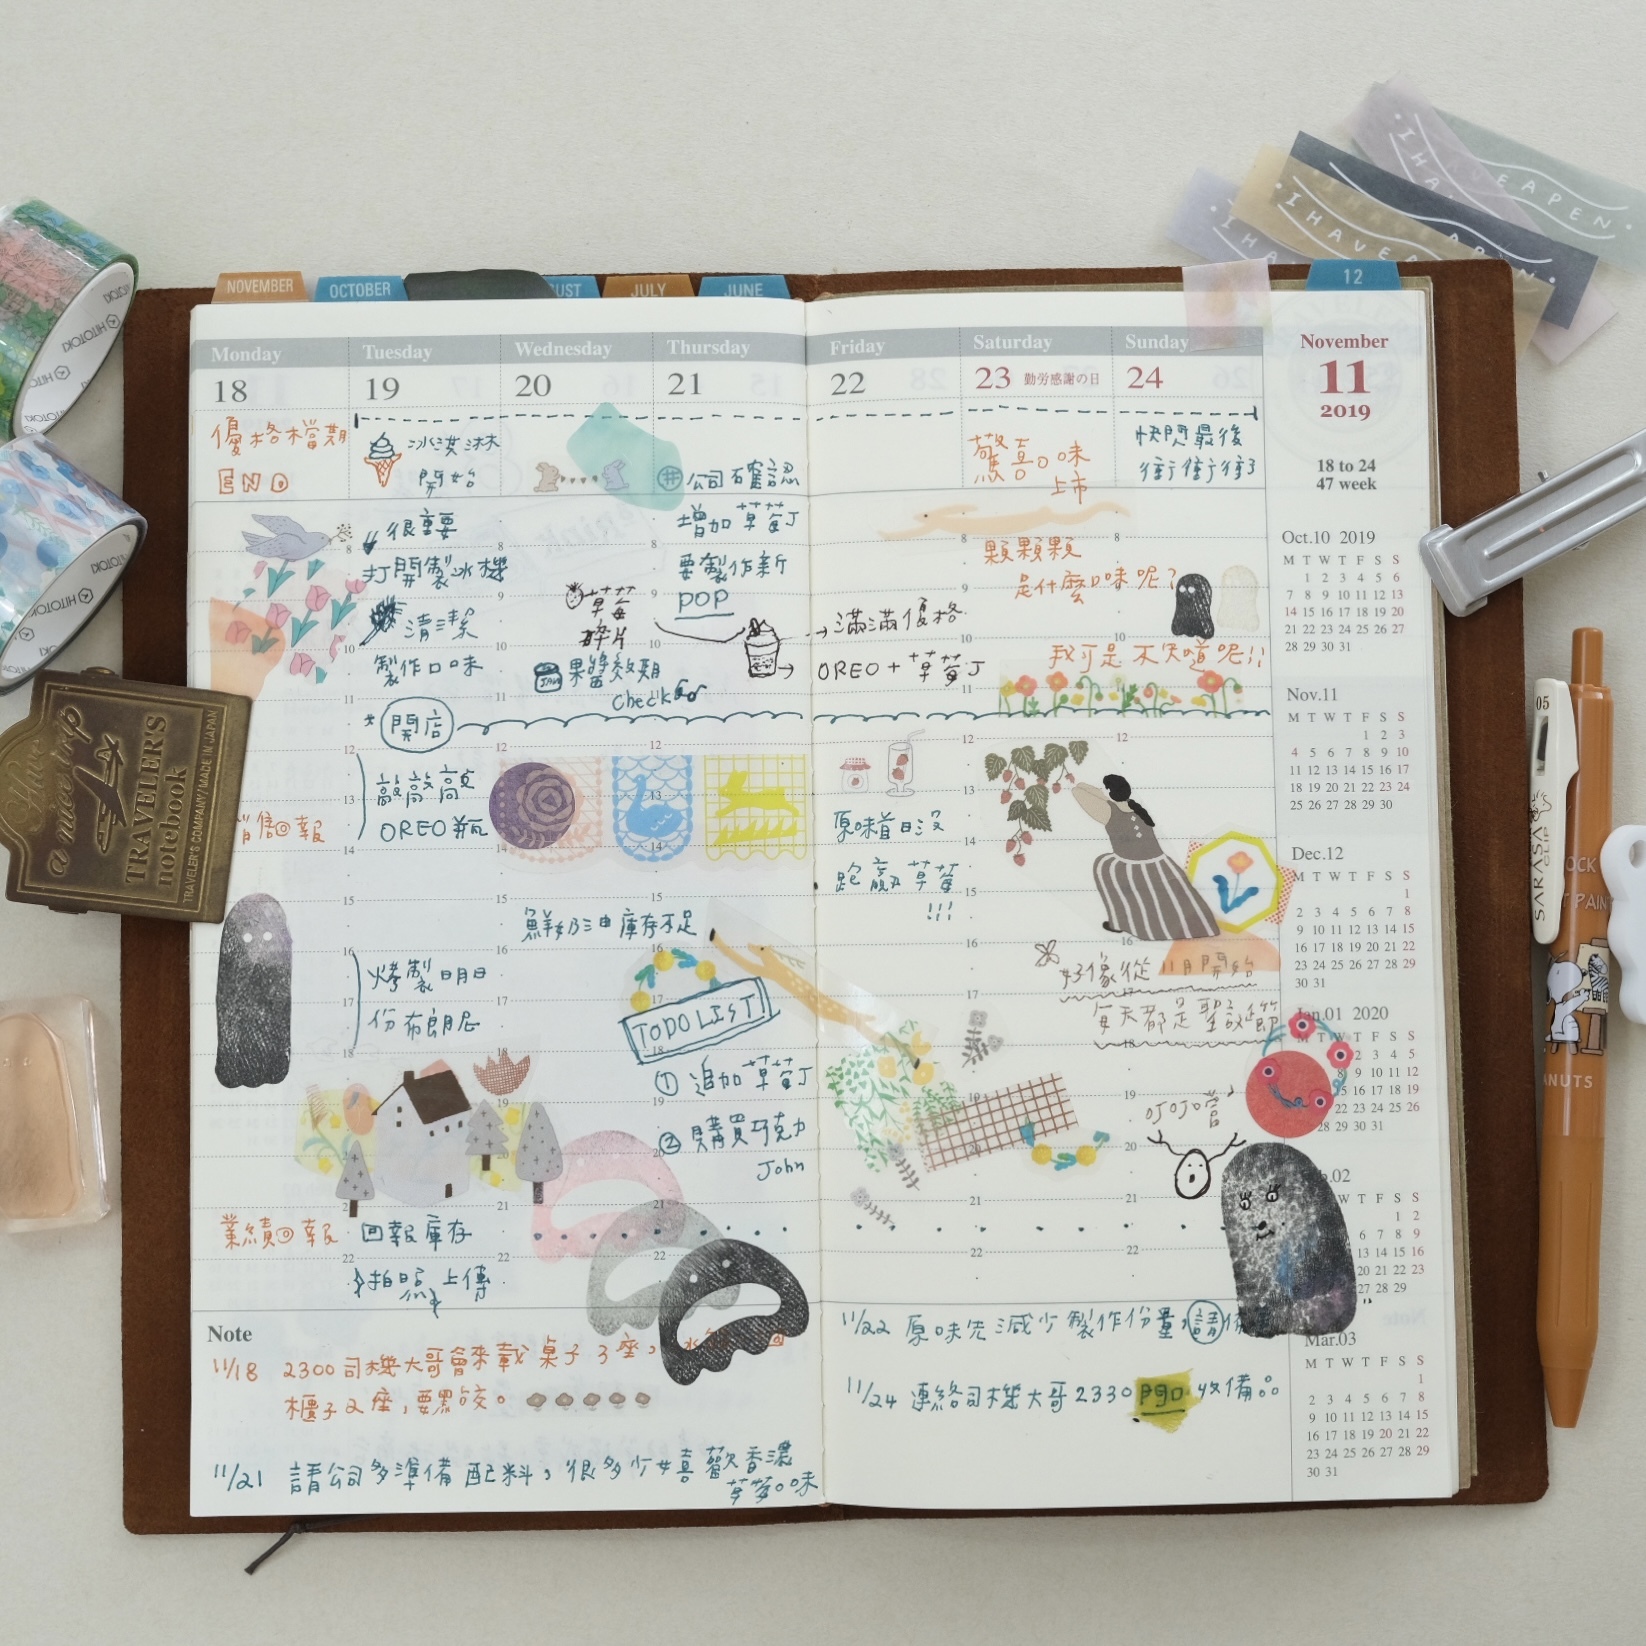 NOVEMBER
OCTOBER
UST
JULY
JUNE
12
Monday
Tuesday
Wednesday
Thursday
Friday
Saturday
Sunday
18
19
20
21
22
23 勤労感謝の日
24
優格檔期
END
冰淇淋
開始
公司確認
驚喜口味
上市
快閃最後
衝衝衝
很重要
打開製冰機
清潔
製作口味
開店
草莓
碎片
果醬效期
check
增加草莓丁
要製作新
pop
→滿滿優格
OREO+草莓丁
顆顆顆
是什麼口味呢?
我可是不知道呢!!
敲敲敲
OREO瓶
銷售回報
烤製明日
份布朗尼
鮮奶油庫存不足
TODO LIST!
① 追加草莓丁
② 購買巧克力
John
原味首日沒
跑贏草莓
!!!
好像從11月開始
每天都是聖誕節
叮叮噹
業績回報
回報庫存
拍照上傳
Note
11/18 2300司機大哥會來載桌子3座,
櫃子2座,要點交。
11/21 請公司多準備配料,很多少女喜歡香濃
草莓口味
11/22 原味先減少製作份量,請
11/24 連絡司機大哥2330門口收備。
November
11
2019
18 to 24
47 week
Oct.10 2019
M T W T F S S
1 2 3 4 5 6
7 8 9 10 11 12 13
14 15 16 17 18 19 20
21 22 23 24 25 26 27
28 29 30 31
Nov.11
M T W T F S S
1 2 3
4 5 6 7 8 9 10
11 12 13 14 15 16 17
18 19 20 21 22 23 24
25 26 27 28 29 30
Dec.12
M T W T F S S
1
2 3 4 5 6 7 8
9 10 11 12 13 14 15
16 17 18 19 20 21 22
23 24 25 26 27 28 29
30 31
Jan.01 2020
2 3 4 5
8 9 10 11 12
15 16 17 18 19
22 23 24 25 26
28 29 30 31
.02
W T F S S
1 2
6 7 8 9
12 13 14 15 16
20 21 22 23
27 28 29
Mar.03
M T W T F S S
1
2 3 4 5 6 7 8
9 10 11 12 13 14 15
16 17 18 19 20 21 22
23 24 25 26 27 28 29
30 31
Have
a nice trip
TRAVELER'S
notebook
TRAVELER'S COMPANY/MADE IN JAPAN
HITOTOKI
HITOTOKI
I HAVE A PEN
05
SARASA
CLIP
PEANUTS